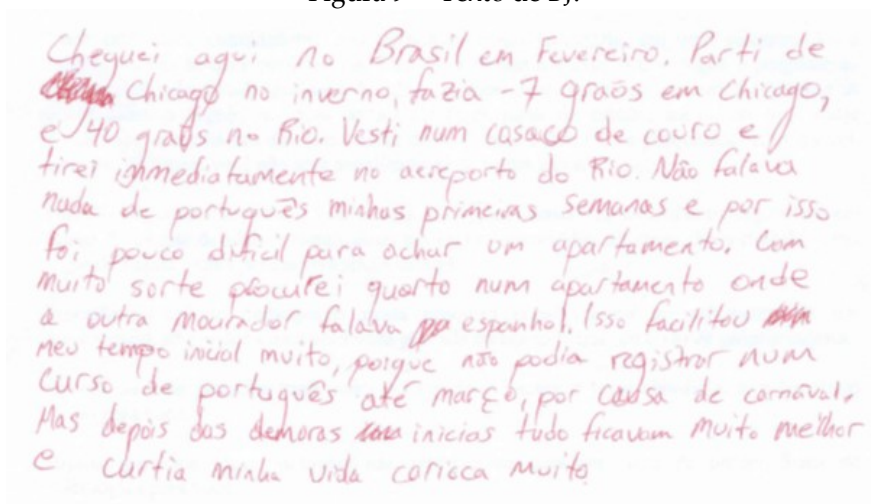 Cheguei aqui no Brasil em Fevereiro. Parti de
Chicago no inverno, fazia -7 graõs em Chicago,
e 40 graõs no Rio. Vesti num casaco de couro e
tirei immediatamente no aereporto do Rio. Não falava
nada de português minhas primeiras semanas e por isso
foi pouco dificil para achar um apartamento. Com
muito sorte procurei quarto num apartamento onde
a outra mourador falava espanhol. Isso facilitou
meu tempo inicial muito, porque não podia registrar num
curso de português até março, por causa de carnaval.
Mas depois das demoras inicias tudo ficavam muito melhor
e curtia minha vida carioca muito